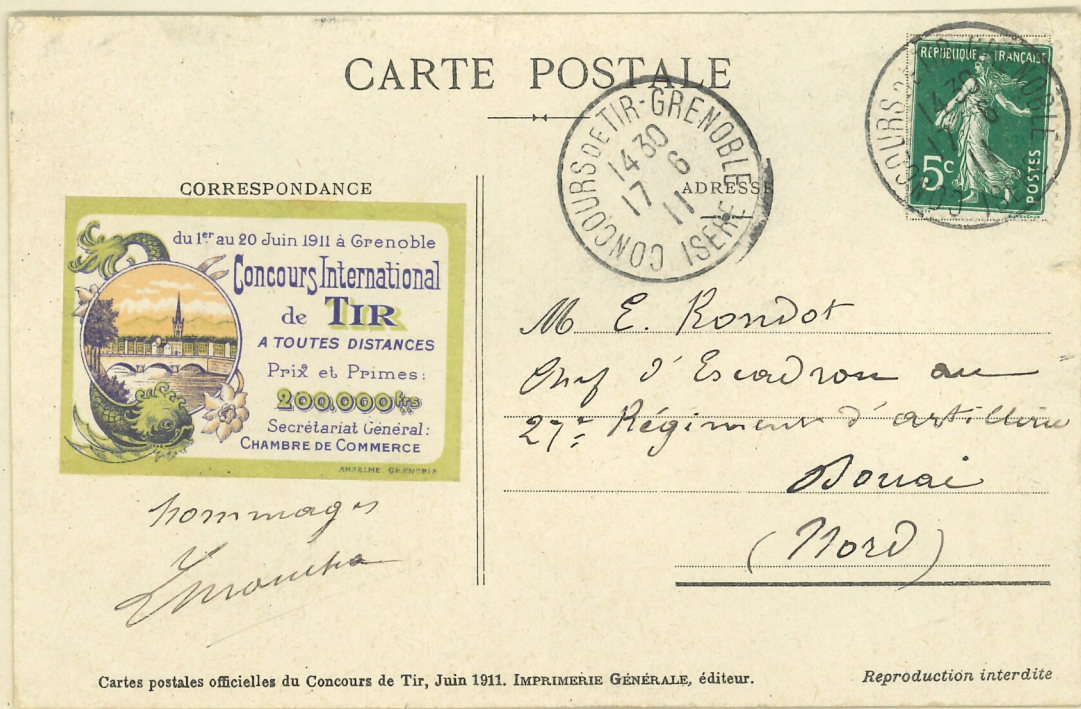 CARTE POSTALE
RÉPUBLIQUE FRANÇAISE
5c
POSTES
CONCOURS DE TIR-GRENOBLE
14 30
17 6
11
ISERE
CORRESPONDANCE
ADRESSE
du 1er au 20 Juin 1911 à Grenoble
Concours International
de TIR
A TOUTES DISTANCES
Prix et Primes:
200,000 Frs
Secrétariat Général:
CHAMBRE DE COMMERCE
GRENOBLE
hommages
M E. Rondot
Chef d'Escadron au
27e Régiment d'artillerie
Douai
(Nord)
Cartes postales officielles du Concours de Tir, Juin 1911. IMPRIMERIE GÉNÉRALE, éditeur.
Reproduction interdite